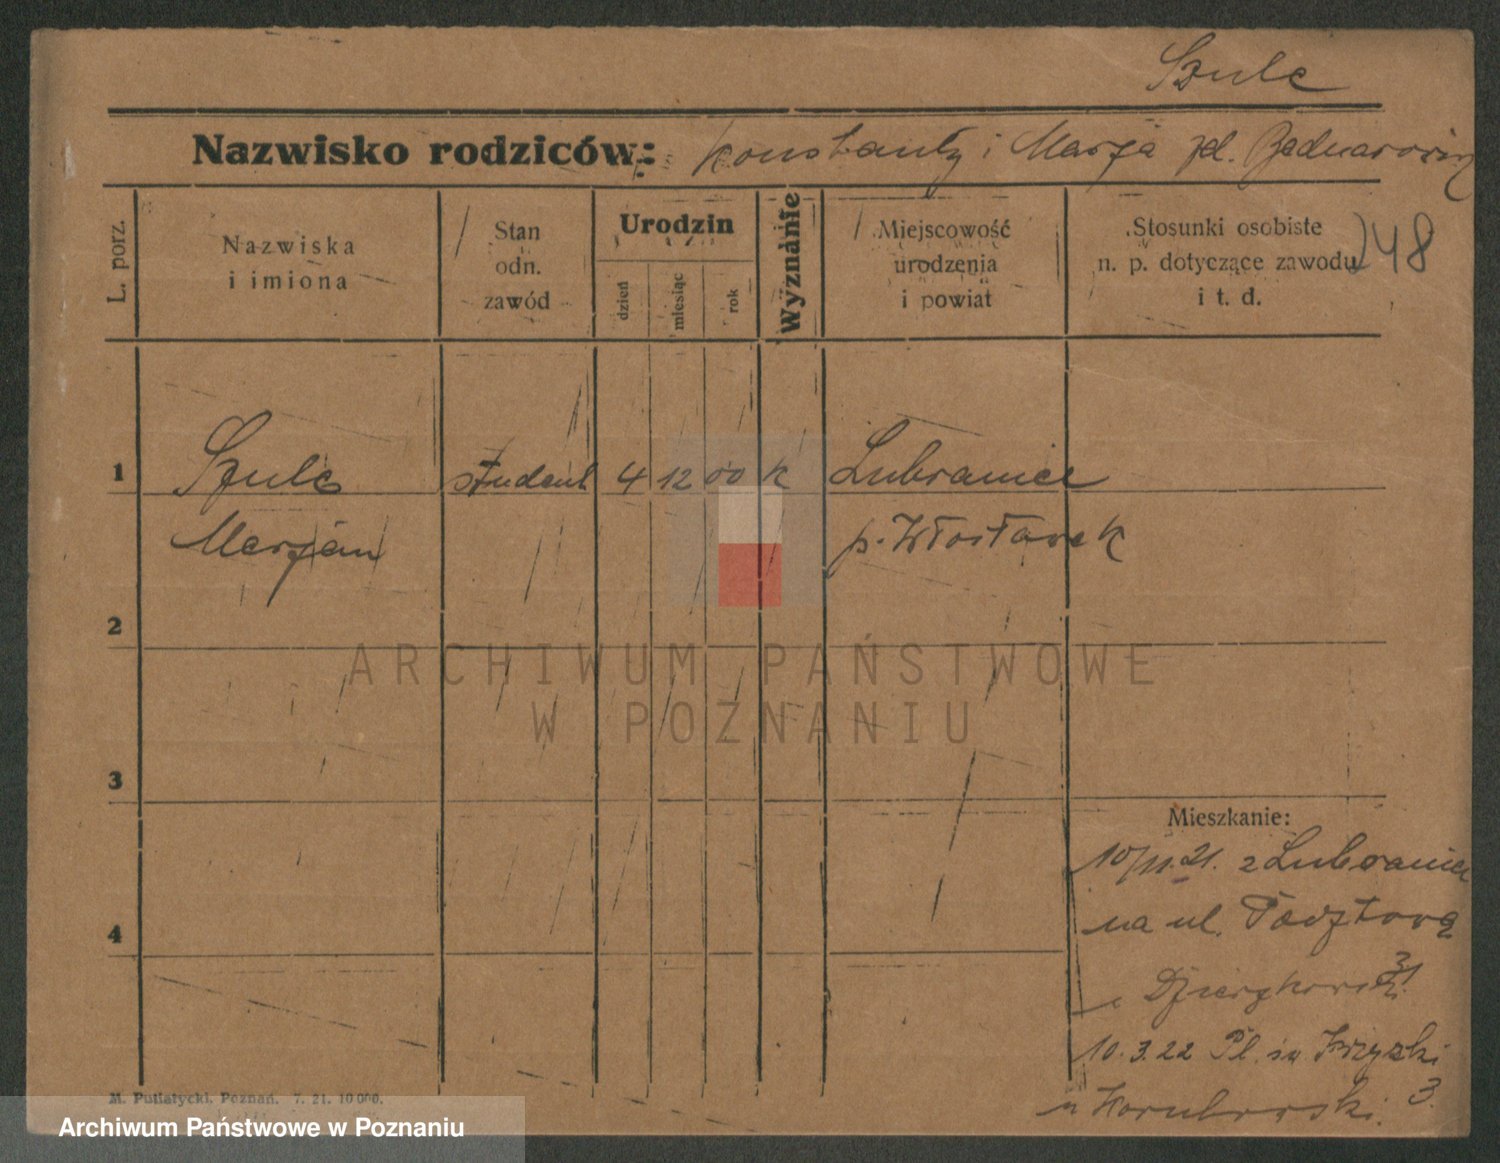 Szulc
Nazwisko rodziców: Konstanty i Marja zd.
L. porz.
Nazwiska
i imiona
Stan
odn.
zawód
Urodzin
dzień
miesiąc
rok
Wyznanie
Miejscowość
urodzenia
i powiat
Stosunki osobiste
n. p. dotyczące zawodu
i t. d.
248
1 Szulc student 4 12 00 k Lubraniec
Marjan p. Włocławek
2
3
4
ARCHIWUM PAŃSTWOWE
W POZNANIU
Mieszkanie:
10/11.21. z Lubrania
na ul. Pocztową
31
10.3.22 Pl. św Krzyski
3.
M. Putiatycki, Poznań. 7. 21. 10 000.
Archiwum Państwowe w Poznaniu